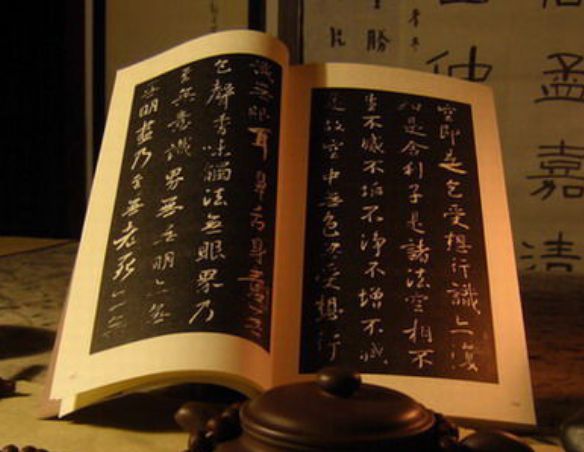 空即是色受想行識亦復
如是舍利子是諸法空相不
生不滅不垢不淨不增不減
是故空中無色無受想行
識無眼耳鼻舌身意無
色聲香味觸法無眼界乃
至無意識界無無明亦無
無明盡乃至無老死亦無
孟嘉清
仲
勝